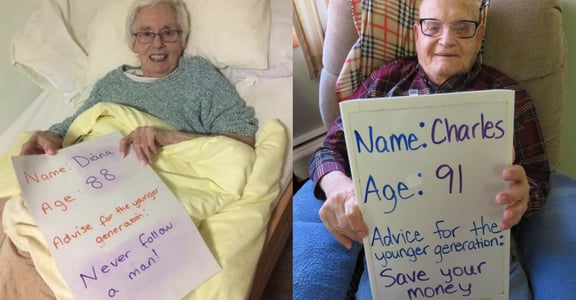 Name: Diana
Age: 88
Advise for the younger
generation:
Never follow
a man!
Name: Charles
Age: 91
Advice for the
younger generation:
Save your
money